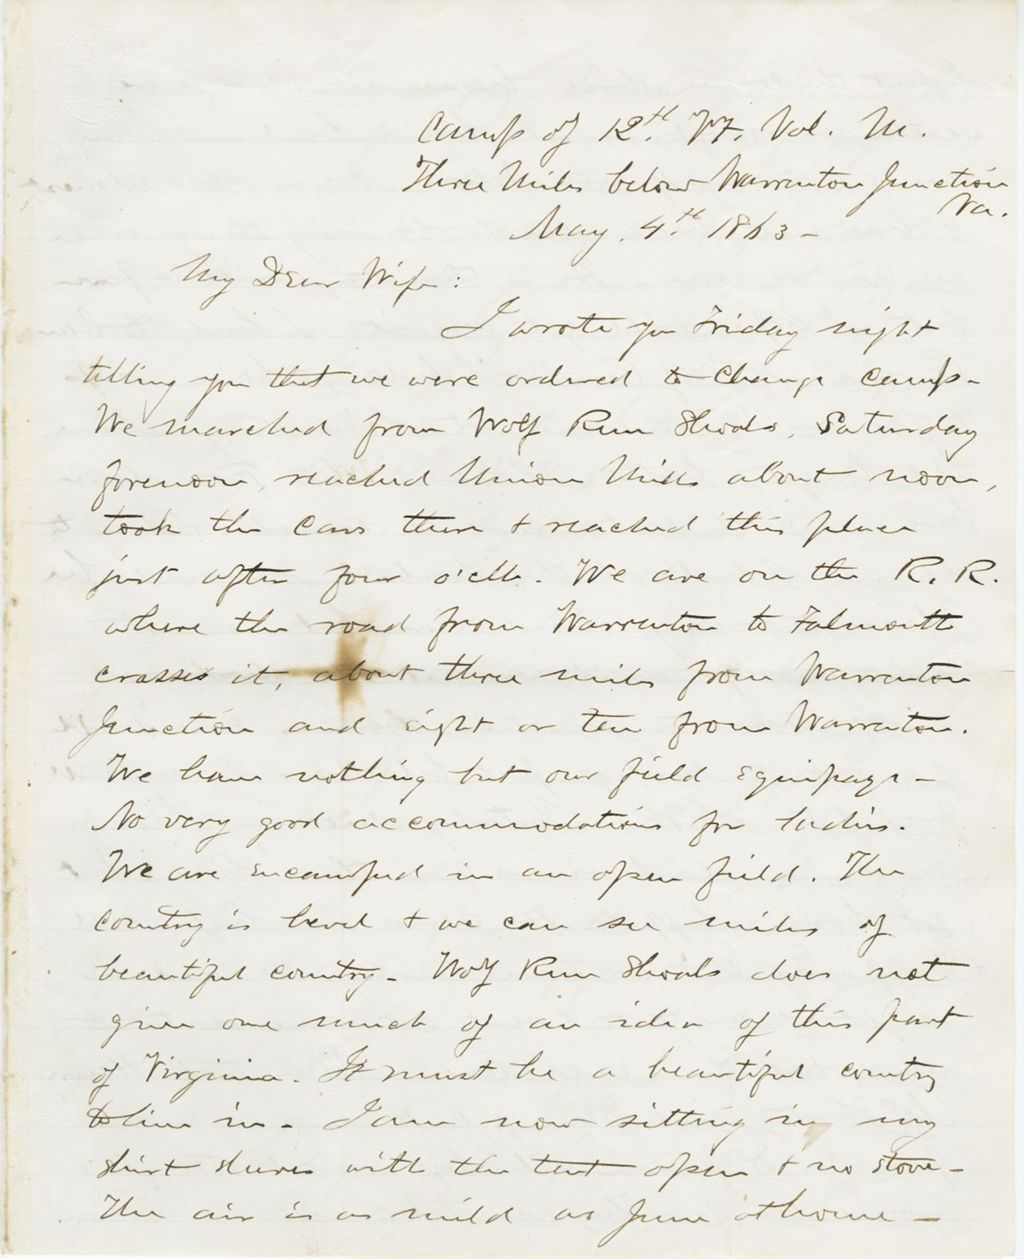 Camp of 12th Vt. Vol. M.
Three Miles below Warrenton Junction
Va.
May. 4th 1863 -
My Dear Wife:
I wrote you Friday night
telling you that we were ordered to change camp -
We marched from Wolf Run Shoals, Saturday
forenoon, reached Union Mills about noon,
took the cars there & reached this place
just after four o'clk. We are on the R. R.
where the road from Warrenton to Falmouth
crosses it, about three miles from Warrenton
Junction and eight or ten from Warrenton.
We have nothing but our field equipage -
No very good accommodations for ladies.
We are encamped in an open field. The
country is level & we can see miles of
beautiful country - Wolf Run Shoals does not
give one much of an idea of this part
of Virginia. It must be a beautiful country
to live in - I am now sitting in my
shirt sleeves with the tent open & no stove -
The air is as mild as June at home -